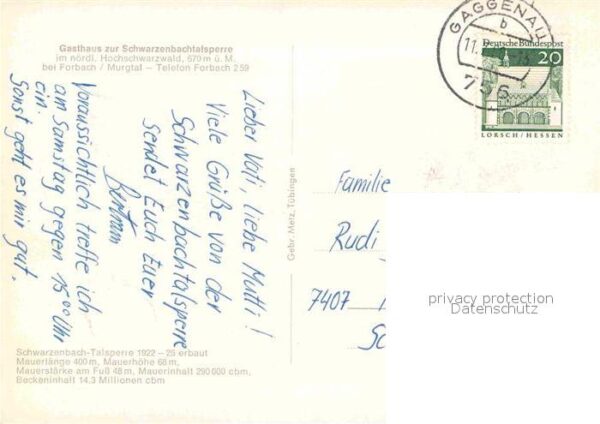 Gasthaus zur Schwarzenbachtalsperre
im nördl. Hochschwarzwald, 670 m ü. M.
bei Forbach / Murgtal – Telefon Forbach 259
Lieber Vati, liebe Mutti!
Viele Grüße von der
Schwarzenbachtalsperre
sendet Euch Euer
Bertram
Voraussichtlich treffe ich
am Samstag gegen 15⁰⁰ Uhr
ein.
Sonst geht es mir gut.
Schwarzenbach-Talsperre 1922 – 25 erbaut
Mauerlänge 400 m, Mauerhöhe 68 m,
Mauerstärke am Fuß 48 m, Mauerinhalt 290 000 cbm,
Beckeninhalt 14,3 Millionen cbm
Gebr. Metz, Tübingen
GAGGENAU
b
11.
756
Deutsche Bundespost
20
LORSCH/HESSEN
Familie
Rudi
7407
privacy protection
Datenschutz